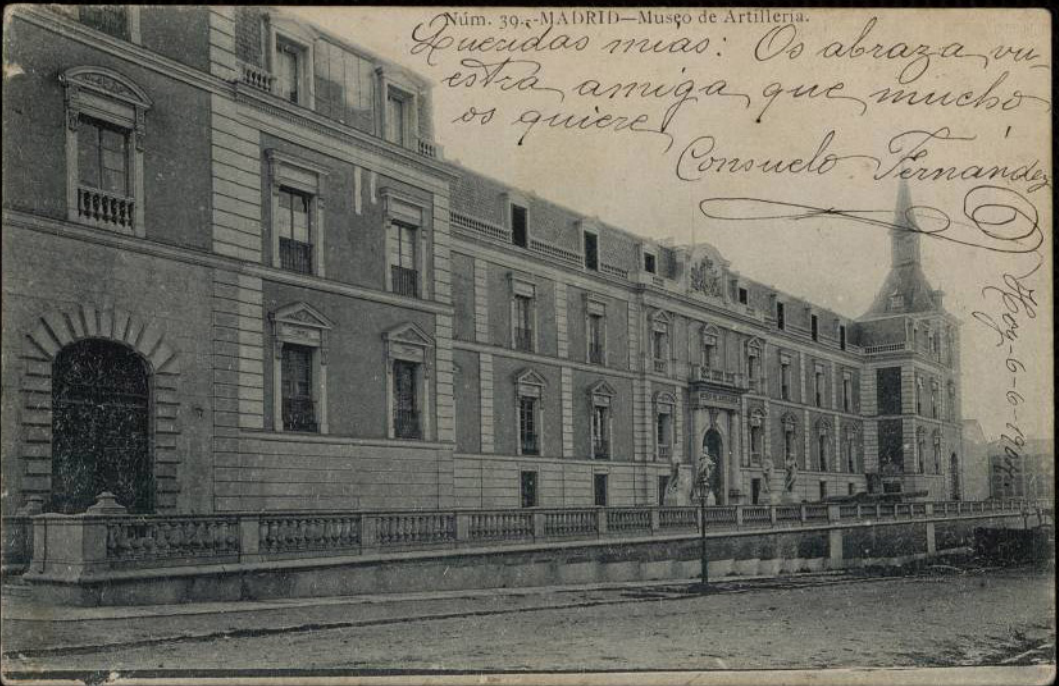 Núm. 39.-MADRID—Museo de Artillería.
Queridas mias: Os abraza vu-
estra amiga que mucho
os quiere
Consuelo Fernandez
Hoy-6-6-190
MUSEO DE ARTILLERIA